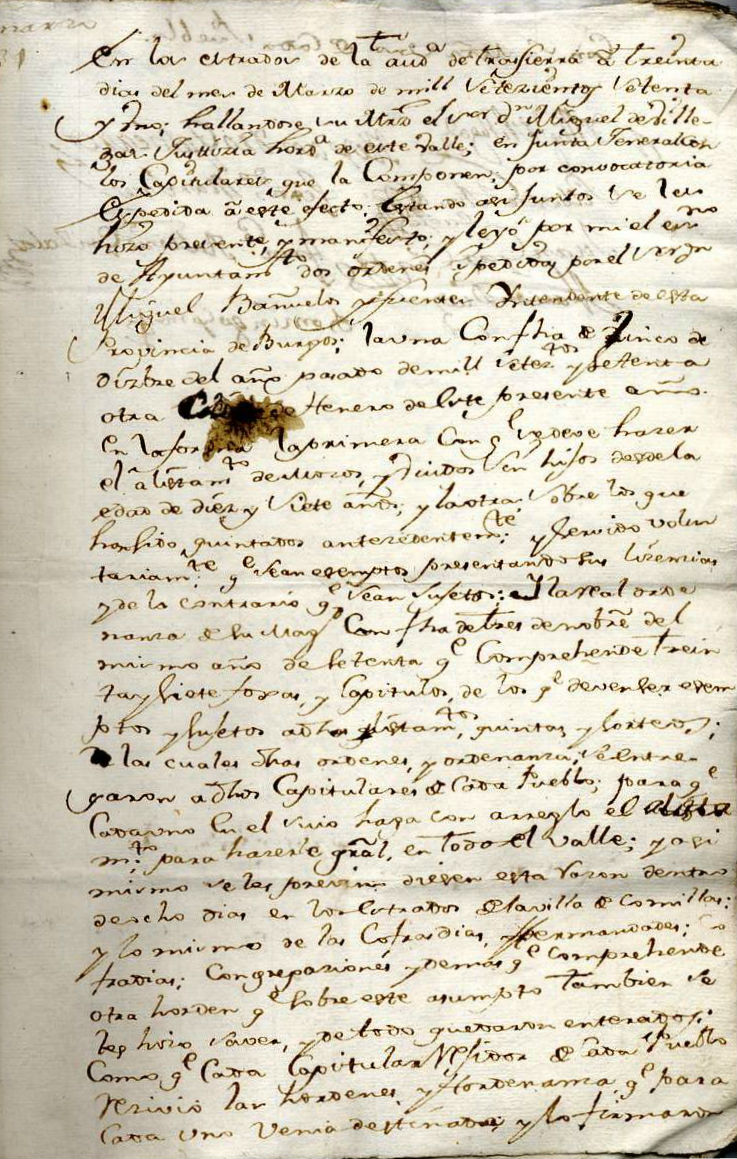 En los estrados de la Aud.ª de trasierra a treinta
dias del mes de Marzo de mill setezientos setenta
y Uno; hallandose su Mrd el s.or d.n Miguel de Ville-
gas Justizia hord.ª de este Valle; en Junta General con
los Capitulares que la Componen, por convocatoria
Espedida a este efecto. Estando asi Juntos se les
hizo presente, y manifiesto, y leyó por mi el ess.no
de Ayuntam.to dos ordenes espedidas por el s.or D.n
Miguel Bañuelos y fuentes Yntendente de esta
Provincia de Burgos; la una Con fha de Zinco de
Dizbre del año pasado de mill setez.tos y setenta
otra de Henero de este presente año.
En la forma la primera Con q.e se deve hazer
el alistam.to de Mozos, y Viudos sin hijos desde la
edad de diez y siete años; y la otra, sobre los que
han sido quintados antezedentem.te y servido volun
tariam.te q.e sean esemptos presentando sus lizencias
y de lo contrario q.e sean sujetos; Y la real orde
nanza de su Mag.d Con fha de tres de nobre del
mismo año de setenta q.e Comprehende trein
ta y siete foxas, y Capitulos, de los q.e deven ser esem
ptos y sujetos a dhos alistam.tos quintas y sorteos;
De las cuales dhas ordenes, y ordenanza, se entre-
garon a dhos Capitulares de Cada Pueblo; para q.e
Cada uno En el suio haga con arreglo el alista
m.to para hazerle gral, en todo el Valle; y asi
mismo se les previno diesen esta razon dentro
de ocho dias en los Estrados de la villa de Comillas:
y lo mismo de las Cofradias, Hermandades; Co
fradias; Congregaziones y demas q.e Comprehende
otra horden q.e sobre este asumpto tambien se
les hizo saver, y de todo quedaron enterados;
Como q.e Cada Capitular Rexidor de Cada Pueblo
Rezivio las hordenes, y hordenanza q.e para
Cada uno venia destinada; y lo firmaron